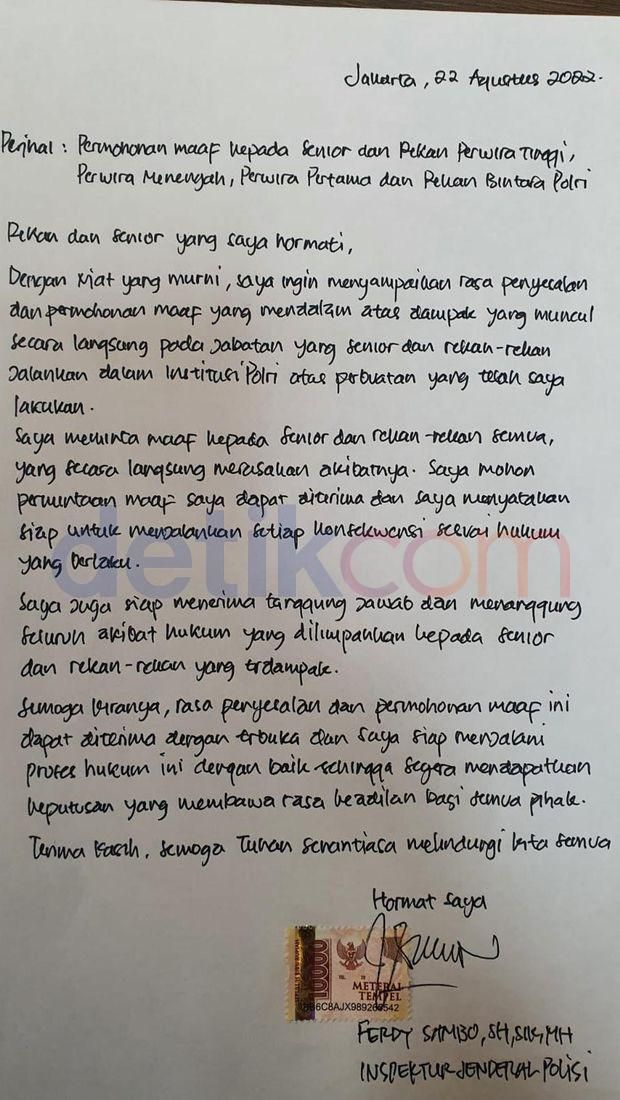 Jakarta, 22 Agustus 2022.
Perihal : Permohonan maaf kepada Senior dan Rekan Perwira Tinggi,
Perwira Menengah, Perwira Pertama dan Rekan Bintara Polri
Rekan dan Senior yang saya hormati,
Dengan niat yang murni, saya ingin menyampaikan rasa penyesalan
dan permohonan maaf yang mendalam atas dampak yang muncul
secara langsung pada jabatan yang senior dan rekan-rekan
jalankan dalam Institusi Polri atas perbuatan yang telah saya
lakukan.
Saya meminta maaf kepada Senior dan rekan-rekan semua,
yang secara langsung merasakan akibatnya. Saya mohon
permintaan maaf saya dapat diterima dan saya menyatakan
siap untuk menjalankan setiap konsekwensi sesuai hukum
yang berlaku.
detikcom
Saya juga siap menerima tanggung jawab dan menanggung
seluruh akibat hukum yang dilimpahkan kepada senior
dan rekan-rekan yang terdampak.
Semoga kiranya, rasa penyesalan dan permohonan maaf ini
dapat diterima dengan terbuka dan Saya siap menjalani
proses hukum ini dengan baik sehingga segera mendapatkan
keputusan yang membawa rasa keadilan bagi semua pihak.
Terima kasih, semoga Tuhan senantiasa melindungi kita semua
Hormat saya
10000
TGL. 20
METERAI
TEMPEL
FERDY SAMBO, SH, SIK, MH
INSPEKTUR JENDERAL POLISI